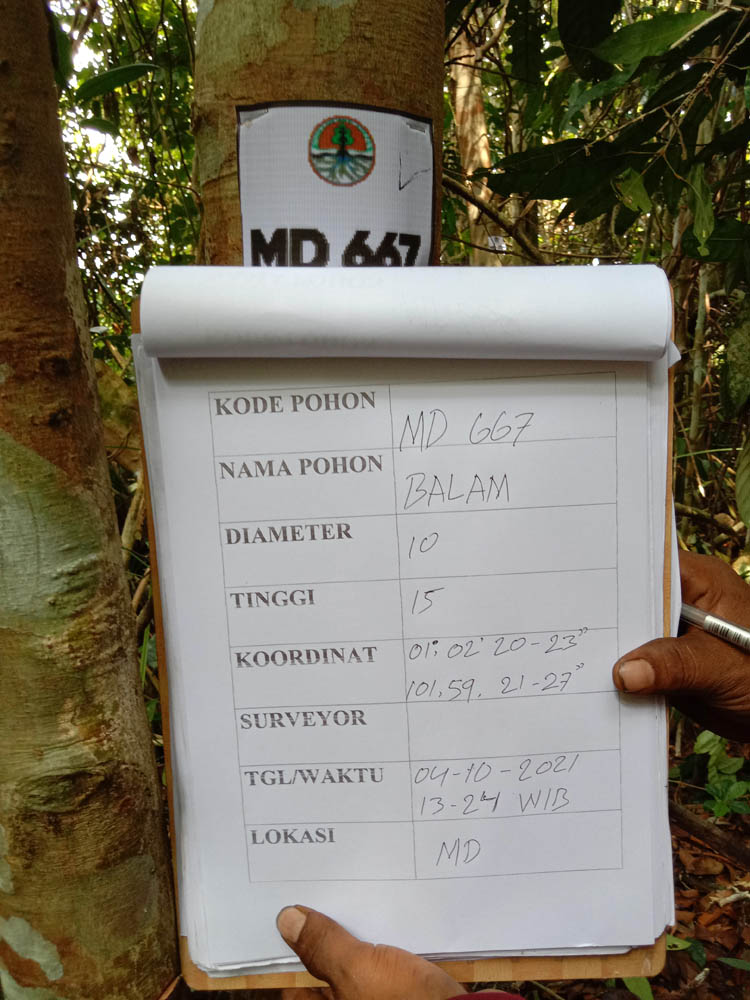 MD 667
KODE POHON MD 667
NAMA POHON BALAM
DIAMETER 10
TINGGI 15
KOORDINAT 01; 02' 20-23"
101, 59. 21-27"
SURVEYOR
TGL/WAKTU 04-10-2021
13-24 WIB
LOKASI MD